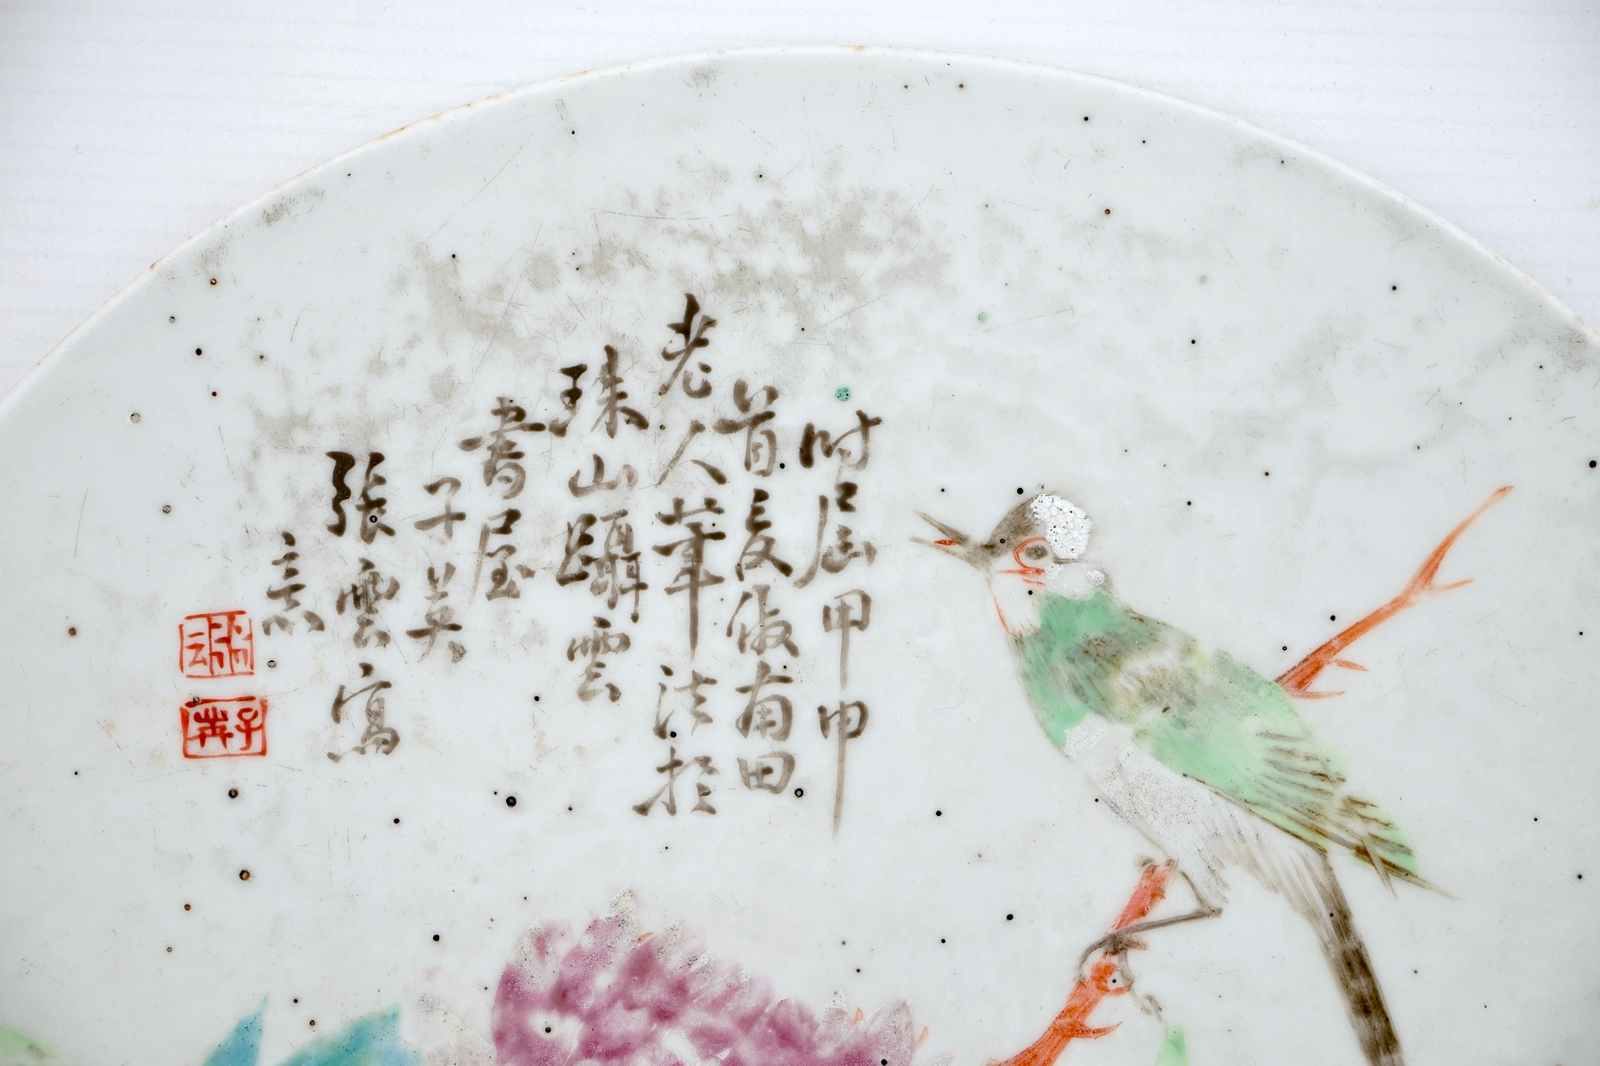 時屆甲申
首夏倣南田
老人筆法於
珠山躡雲
書屋
子英
張雲寫
意
子英